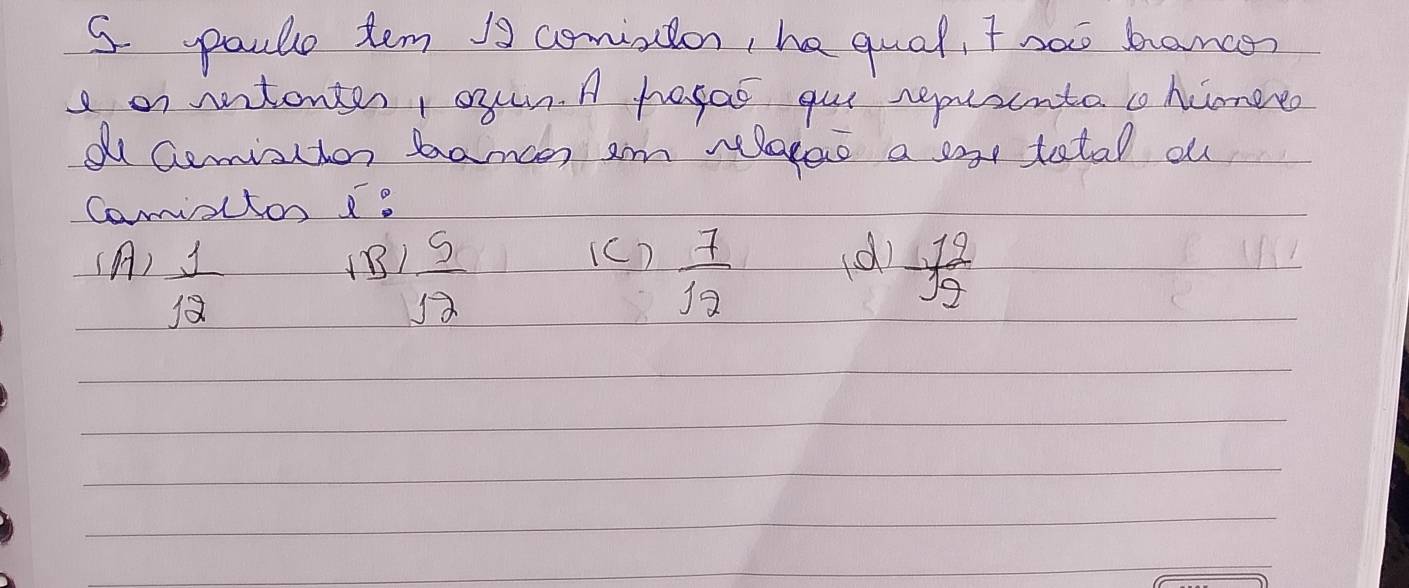 5- paulo tem 12 camisetas, na qual, 7 saõ brancas
e as restantes, azuis. A fraçaõ que representa o número
de camisetas brancas em relaçaõ a esse total de
camisetas é:
(A) 1/12 (B) 5/12 (C) 7/12 (d) 12/12